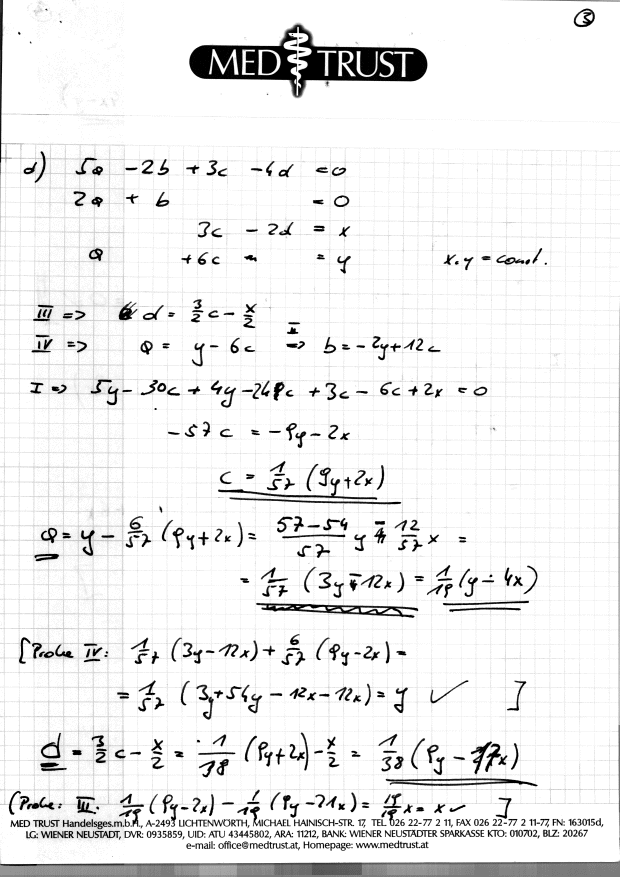 ③
MED TRUST
d) 5a - 2b + 3c - 4d = 0
2a + b = 0
3c - 2d = x
a + 6c = y x, y = const.
III => d = 3/2 c - x/2
IV => a = y - 6c II => b = -2y + 12c
I => 5y - 30c + 4y - 24c + 3c - 6c + 2x = 0
-57c = -9y - 2x
c = 1/57 (9y + 2x)
a = y - 6/57 (9y + 2x) = (57 - 54)/57 y - 12/57 x =
= 1/57 (3y - 12x) = 1/19 (y - 4x)
[Probe IV: 1/57 (3y - 12x) + 6/57 (9y - 2x) =
= 1/57 (3y + 54y - 12x - 12x) = y ✓ ]
d = 3/2 c - x/2 = 1/38 (9y + 2x) - x/2 = 1/38 (9y - 17x)
(Probe: III: 1/19 (9y - 2x) - 1/19 (9y - 21x) = 19/19 x = x ✓ ]
MED TRUST Handelsges.m.b.H., A-2493 LICHTENWÖRTH, MICHAEL HAINISCH-STR. 17, TEL. 026 22-77 2 11, FAX 026 22-77 2 11-77, FN: 163015d,
LG: WIENER NEUSTADT, DVR: 0935859, UID: ATU 43445802, ARA: 11212, BANK: WIENER NEUSTÄDTER SPARKASSE KTO: 010702, BLZ: 20267
e-mail: office@medtrust.at, Homepage: www.medtrust.at